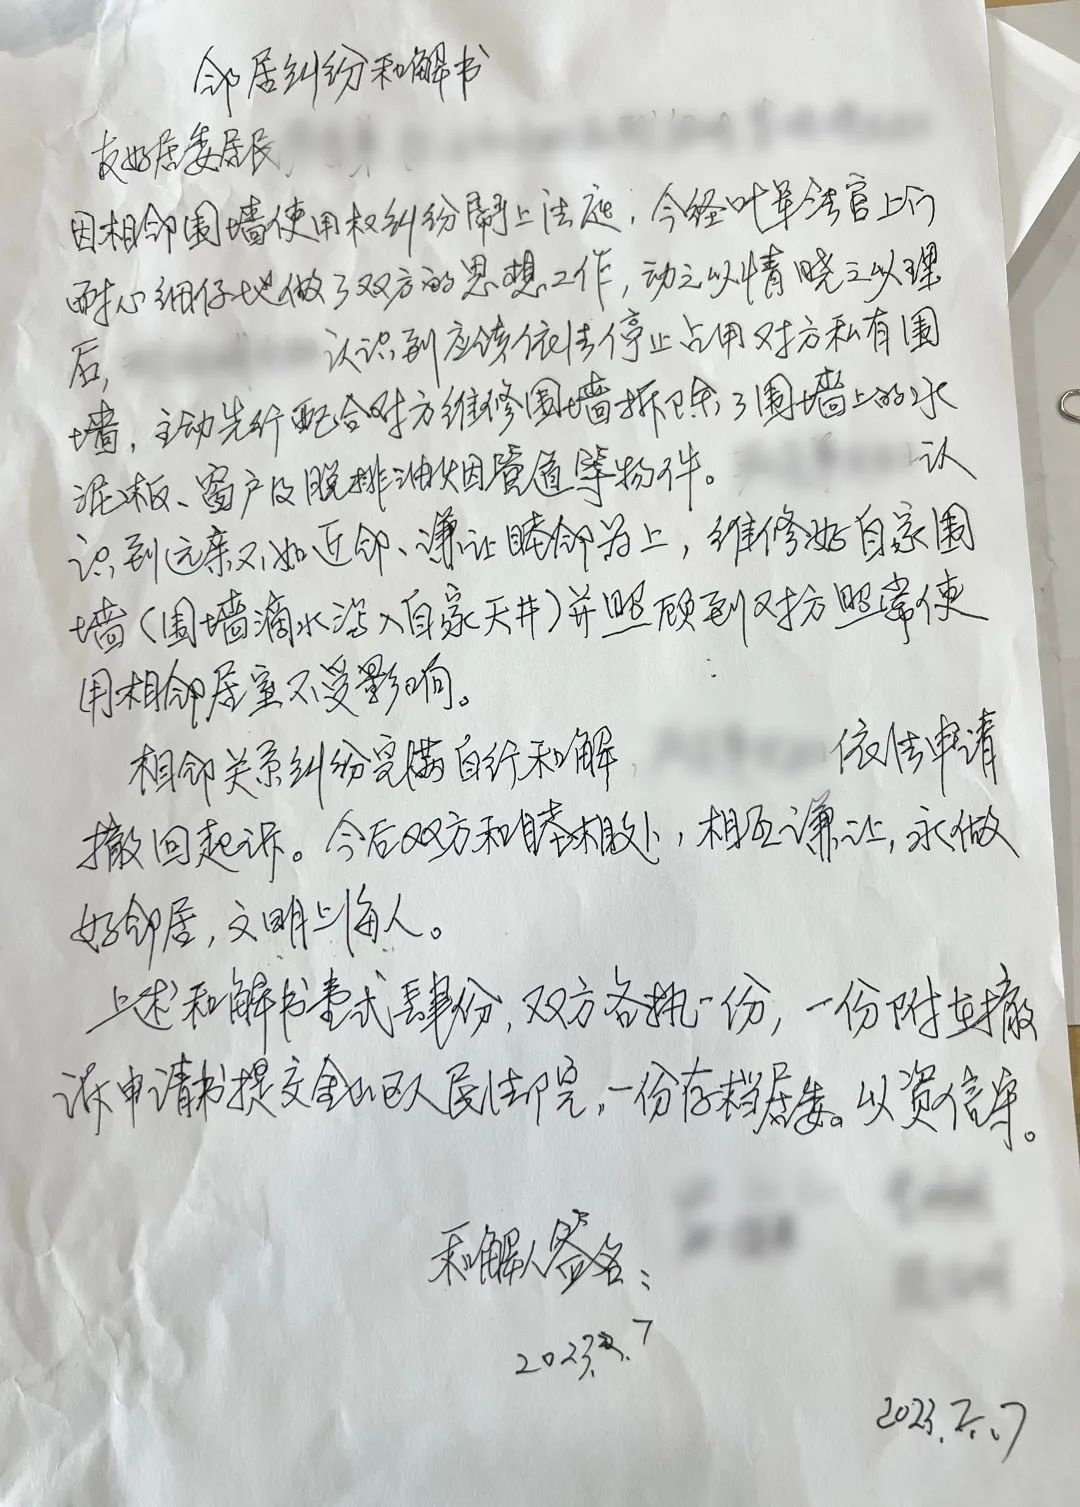 邻居纠纷和解书
友好居委居民
因相邻围墙使用权纠纷闹上法庭，今经叶单法官上门
耐心细仔地做了双方的思想工作，动之以情晓之以理
后，认识到应该依法停止占用对方私有围
墙，主动先行配合对方维修围墙拆除了围墙上的水
泥板、窗户及脱排油烟管道等物件。认
识到远亲不如近邻、谦让睦邻为上，维修好自家围
墙（围墙滴水泻入自家天井）并照顾到对方照常使
用相邻居室不受影响。
相邻关系纠纷完满自行和解，依法申请
撤回起诉。今后双方和睦相处，相互谦让，永做
好邻居，文明上海人。
上述和解书壹式肆份，双方各执一份，一份附在撤
诉申请书提交金山区人民法院，一份存档居委。以资信守。
和解人签名：
2023.2.7
2023.2.7